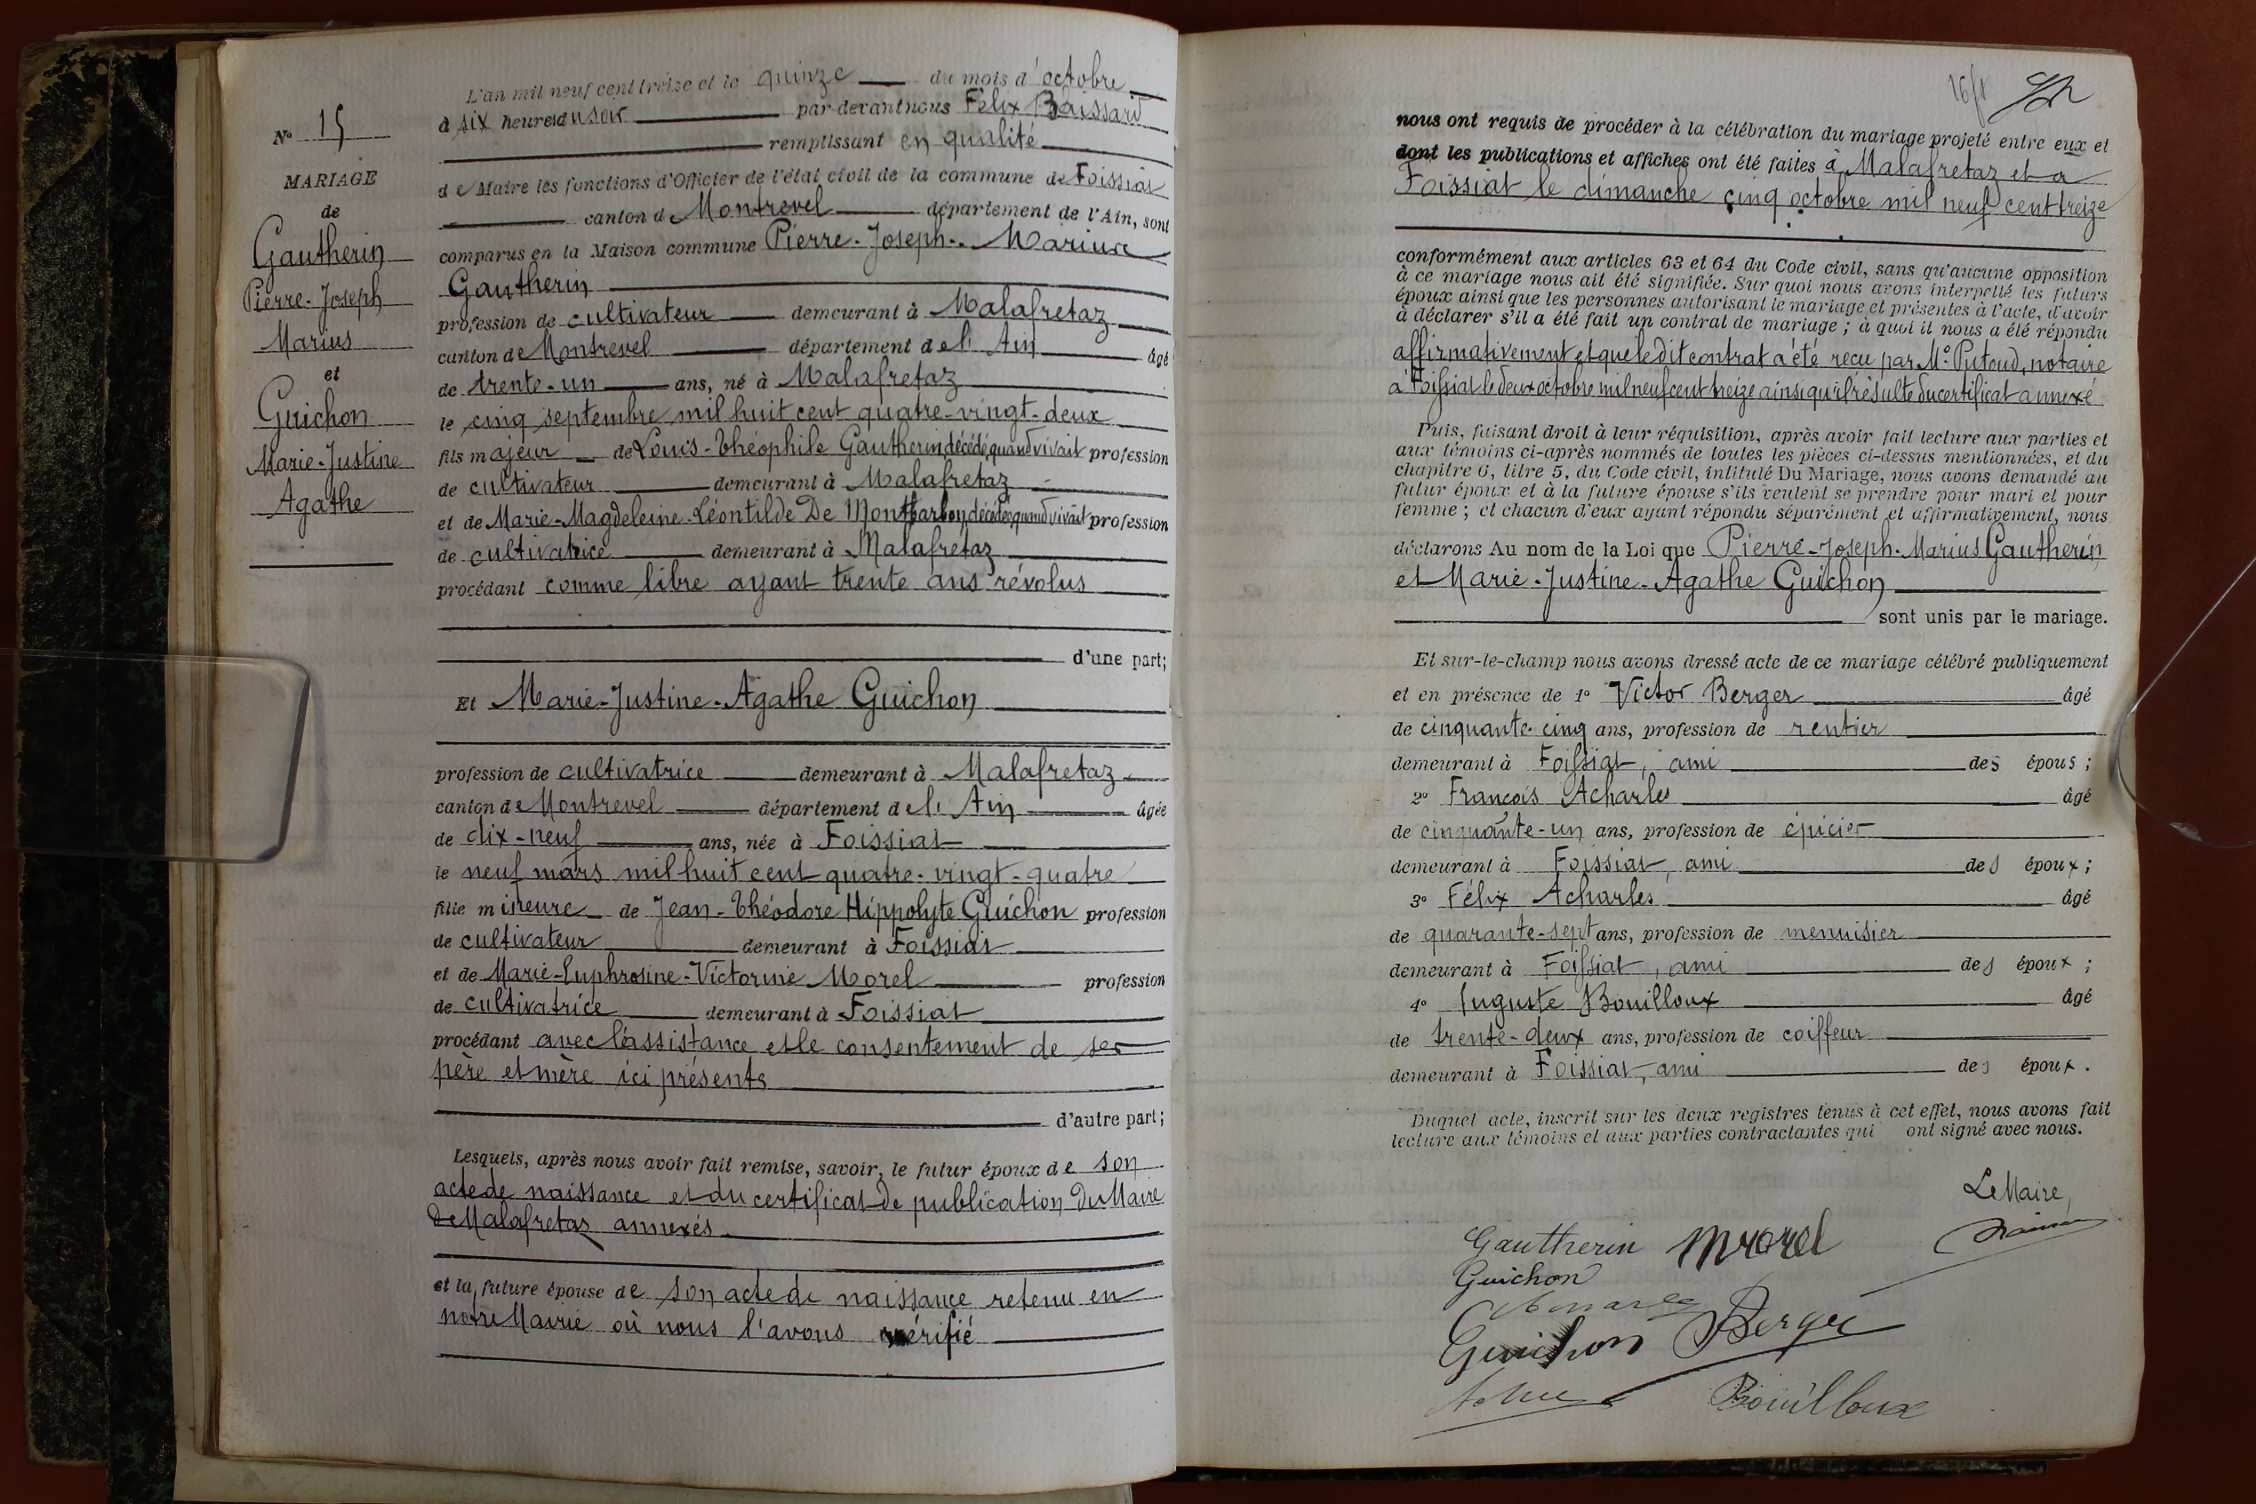 N° 15
MARIAGE
de
Gautherin
Pierre-Joseph
Marius
et
Guichon
Marie-Justine
Agathe
L'an mil neuf cent treize et le quinze du mois d'octobre
à six heures du soir par-devant nous Félix Baissard
remplissant en qualité
de Maire les fonctions d'Officier de l'état civil de la commune de Foissiat
canton de Montrevel département de l'Ain, sont
comparus en la Maison commune Pierre-Joseph-Marius
Gautherin
profession de cultivateur demeurant à Malafretaz
canton de Montrevel département de l'Ain âgé
de trente-un ans, né à Malafretaz
le cinq septembre mil huit cent quatre-vingt-deux
fils majeur de Louis-Théophile Gautherin décédé, quand vivait profession
de cultivateur demeurant à Malafretaz
et de Marie-Magdeleine-Léontilde De Montbarbon, décédée, quand vivait profession
de cultivatrice demeurant à Malafretaz
procédant comme libre ayant trente ans révolus
d'une part;
Et Marie-Justine-Agathe Guichon
profession de cultivatrice demeurant à Malafretaz
canton de Montrevel département de l'Ain âgée
de dix-neuf ans, née à Foissiat
le neuf mars mil huit cent quatre-vingt-quatre
fille mineure de Jean-Théodore Hippolyte Guichon profession
de cultivateur demeurant à Foissiat
et de Marie-Euphrosine-Victorine Morel profession
de cultivatrice demeurant à Foissiat
procédant avec l'assistance et le consentement de ses
père et mère ici présents
d'autre part;
Lesquels, après nous avoir fait remise, savoir, le futur époux de son
acte de naissance et du certificat de publication du Maire
de Malafretaz annexés
et la future épouse de son acte de naissance retenu en
notre Mairie où nous l'avons vérifié
nous ont requis de procéder à la célébration du mariage projeté entre eux et
dont les publications et affiches ont été faites à Malafretaz et a
Foissiat le dimanche cinq octobre mil neuf cent treize
conformément aux articles 63 et 64 du Code civil, sans qu'aucune opposition
à ce mariage nous ait été signifiée. Sur quoi nous avons interpellé les futurs
époux ainsi que les personnes autorisant le mariage et présentes à l'acte, d'avoir
à déclarer s'il a été fait un contrat de mariage; à quoi il nous a été répondu
affirmativement et que ledit contrat a été reçu par Me Putoud, notaire
à Foissiat le deux octobre mil neuf cent treize ainsi qu'il résulte du certificat annexé
Puis, faisant droit à leur réquisition, après avoir fait lecture aux parties et
aux témoins ci-après nommés de toutes les pièces ci-dessus mentionnées, et du
chapitre 6, titre 5, du Code civil, intitulé Du Mariage, nous avons demandé au
futur époux et à la future épouse s'ils veulent se prendre pour mari et pour
femme; et chacun d'eux ayant répondu séparément et affirmativement, nous
déclarons Au nom de la Loi que Pierre-Joseph-Marius Gautherin
et Marie-Justine-Agathe Guichon
sont unis par le mariage.
Et sur-le-champ nous avons dressé acte de ce mariage célébré publiquement
et en présence de 1° Victor Berger âgé
de cinquante-cinq ans, profession de rentier
demeurant à Foissiat, ami des épous;
2° François Acharles âgé
de cinquante-un ans, profession de épicier
demeurant à Foissiat, ami des époux;
3° Félix Acharles âgé
de quarante-sept ans, profession de menuisier
demeurant à Foissiat, ami des époux;
4° Auguste Bouilloux âgé
de trente-deux ans, profession de coiffeur
demeurant à Foissiat, ami des époux.
Duquel acte, inscrit sur les deux registres tenus à cet effet, nous avons fait
lecture aux témoins et aux parties contractantes qui ont signé avec nous.
Le Maire,
Gautherin Morel
Guichon
Guichon Berger
Bouilloux